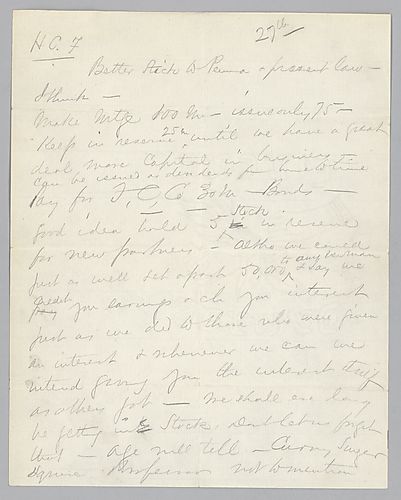 27th
H C. F
Better stick to Penna & present law —
I think —
Make Mtg 100 M — issue only 75 —
Keep in reserve 25m until we have a great
deal more Capital in business —
can be issued as dividends from time to time
Pay for F, C Co Bonds —
good idea hold 5 Stock in reserve
for new partners — altho we could
just as well set apart 50,000 to any new man & say we
credit you earnings & chg you interest
just as we did to those who were given
an interest & whenever we can we
intend giving you the interest itself
as others got — we shall ere long
be getting in Stocks dont let us forget
that — age will tell — Curry Singer
Squire Professor not to mention